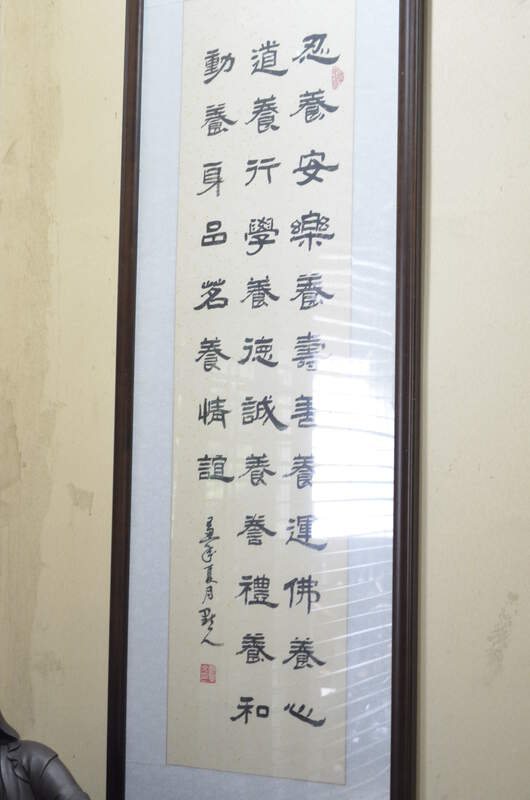 忍養安樂養壽善養運佛養心
道養行學養德誠養譽禮養和
動養身品茗養情誼
年夏月 人